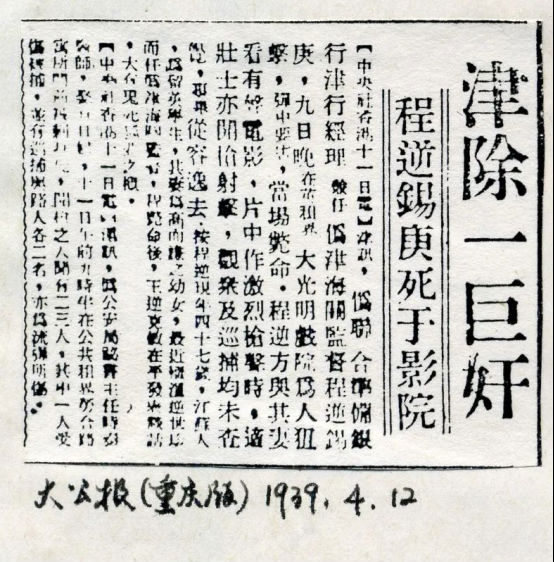 津除一巨奸
程逆錫庚死于影院
【中央社香港十一日電】津訊，偽聯合準備銀
行津行經理兼任偽津海關監督程逆錫
庚，九日晚在英租界大光明戲院為人狙
擊，彈中要害，當場斃命。程逆方與其妻
看有聲電影，片中作激烈槍聲時，適
壯士亦開槍射擊，觀眾及巡捕均未查
覺，從容逸去，按程逆現年四十七歲，江蘇人
，為留英學生，其妻為
之幼女，最近
而任偽津海關監督，程斃命後，王逆克敏在平發表談話
，大有兔死狐悲之慨。
【中央社香港十一日電】滬訊，偽公安局
主任時
十一日午前九時半在公共租界
開槍之人聞有二三人，其中一人受
傷被捕，並有巡捕與路人各二名，亦為流彈所傷。
大公报(重庆版) 1939. 4. 12